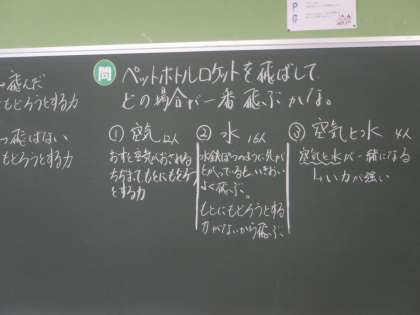 飛んだ
もどろうとする力
飛ばない
もどろうとする力
問 ペットボトルロケットを飛ばして
どの場合が一番飛ぶかな。
① 空気 12人
おすと空気がおされる
ちぢまってもとにもどろう
とする力
② 水 16人
水鉄ぽうのように先が
とがっているといきおい
よく飛ぶ。
もとにもどろうとする
力がないから飛ぶ、
③ 空気と水 4人
空気と水が一緒になる
い力が強い